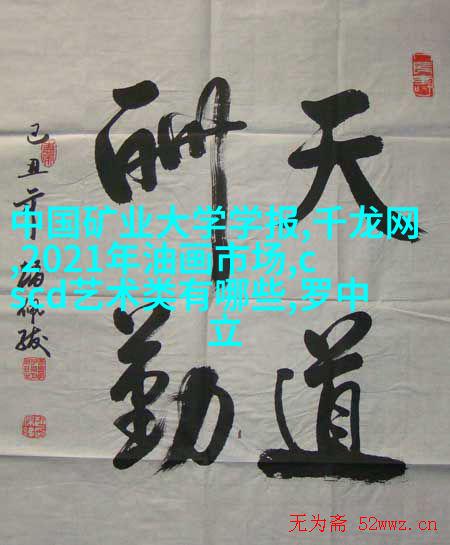 天道
酬勤
己丑
中国矿业大学学报,千龙网
,2021年油画市场,c
scd艺术类有哪些,罗中
立
无为斋 52wwz.cn